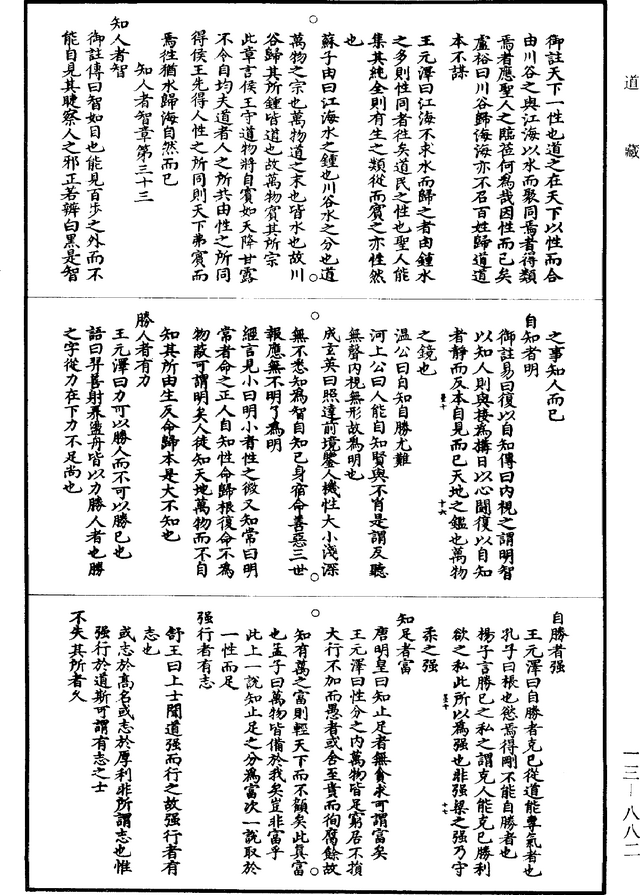 道藏
御註天下一性也道之在天下以性而合
由川谷之與江海以水而聚同焉者得類
焉者應聖人之臨莅何為哉因性而已矣
盧裕曰川谷歸海海亦不召百姓歸道道
本不諜
王元澤曰江海不求水而歸之者由鍾水
之多則性同者徃矣道民之性也聖人能
集其純全則有生之類從而賓之亦性然
也
蘇子由曰江海水之鍾也川谷水之分也道
萬物之宗也萬物道之末也皆水也故川
谷歸其所鍾皆道也故萬物賓其所宗
此章言侯王守道物將自賓如天降甘露
不令自均夫道者人之所共由性之所同
得侯王先得人性之所同則天下弗賓而
焉徃猶水歸海自然而已
知人者智章第三十三
知人者智
御註傳曰智如目也能見百步之外而不
能自見其睫察人之邪正若辨白黑是智
之事知人而已
自知者明
御註易曰復以自知傳曰内視之謂明智
以知人則與接為構日以心鬪復以自知
者静而反本自見而已天地之鑑也萬物
之鏡也
温公曰自知自勝尤難
河上公曰人能自知賢與不肖是謂反聽
無聲内視無形故為明也
成玄英曰照達前境鑒人機性大小淺深
無不悉知為智自知己身宿命善惡三世
報應無不明了為明
經言見小曰明小者性之微又知常曰明
常者命之正人自知性命歸根復命不為
物蔽可謂明矣人徒知天地萬物而不自
知其所由生反命歸本是大不知也
勝人者有力
王元澤曰力可以勝人而不可以勝己也
語曰羿善射奡盪舟皆以力勝人者也勝
之字從力在下力不足尚也
自勝者强
王元澤曰自勝者克己從道能專氣者也
孔子曰棖也慾焉得剛不能自勝者也
楊子言勝己之私之謂克人能克己勝利
欲之私此所以為强也非强梁之强乃守
柔之强
知足者富
唐明皇曰知止足者無貪求可謂富矣
王元澤曰性分之内萬物皆足窮居不損
大行不加而愚者或合至貴而徇腐餘故
知有萬之富則輕天下而不顧矣此真富
也孟子曰萬物皆備於我矣豈非富乎
此上一說知止足之分為富次一說取於
一性而足
强行者有志
舒王曰上士聞道强而行之故强行者有
志也
或志於高名或志於厚利非所謂志也惟
强行於道斯可謂有志之士
不失其所者久
一三—八八二